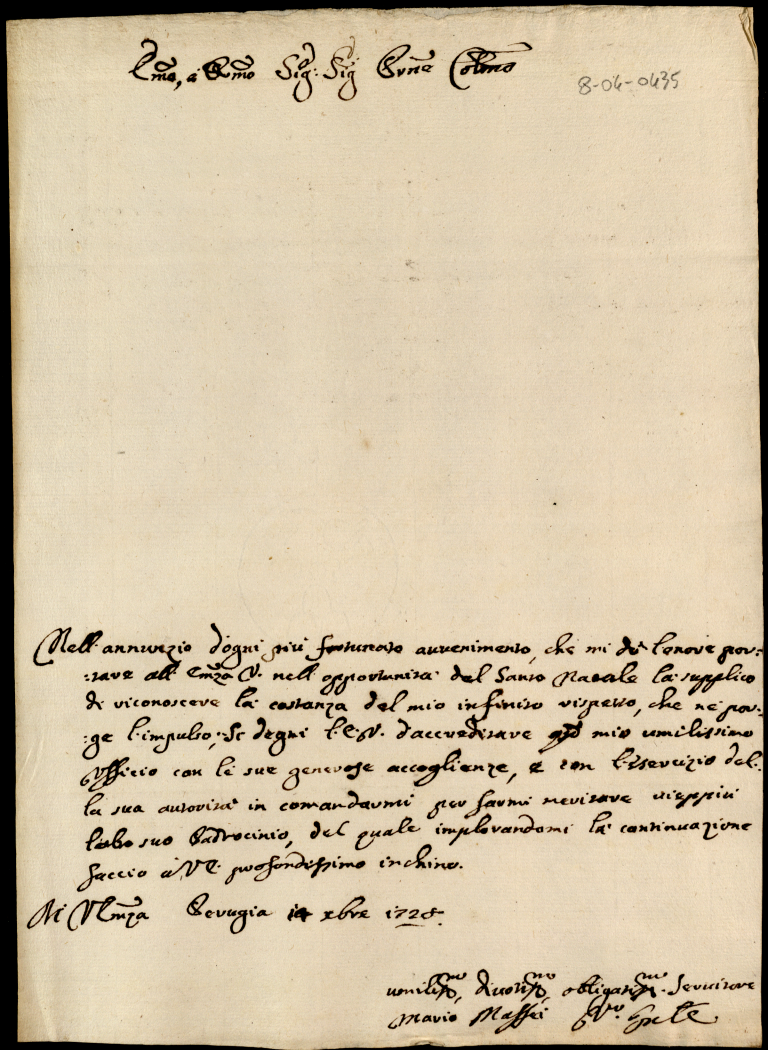 Em̃o, e Rm̃o Sig:r Sig:r Prñe Colm̃o
8-04-0435
Nell'annunzio d'ogni più fortunato avvenimento, che mi dò l'onore por:
:tare all'Em̃za V. nell'opportunità del Santo Natale la supplico
di riconoscere la costanza del mio infinito rispetto, che ne por:
:ge l'impulso; Si degni l'E.V. d'accreditare mio umilissimo
Ufficio con le sue generose accoglienze, e con l'esercizio del:
la sua autorità in comandarmi per farmi meritare vieppiù
suo Padrocinio, del quale implorandomi la continuazione
faccio à V.E. profondissimo inchino.
Di V Em̃za Perugia 14 xbre 1728.
umiliss.mo, divotiss.mo, obligatiss.mo Servitore
Mario Maffei